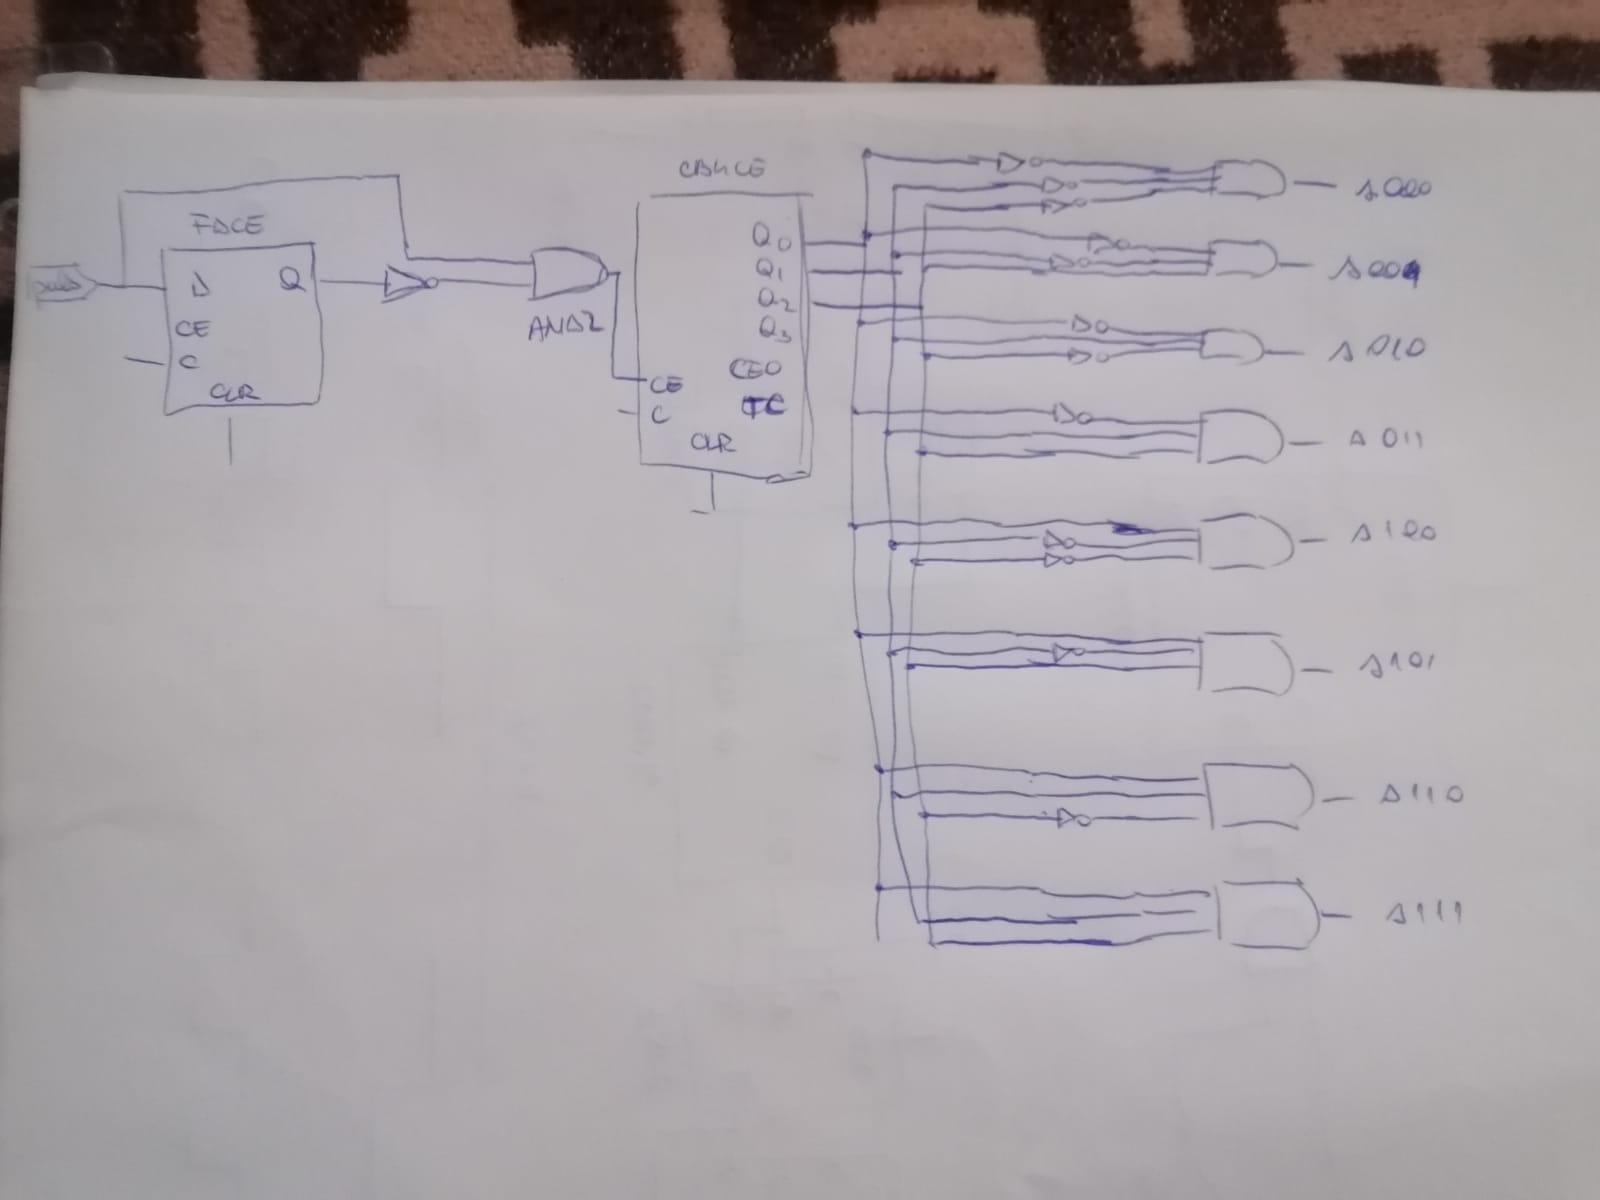 CB4CE
FDCE
D Q
CE
C
CLR
AND2
Q0
Q1
Q2
Q3
CEO
CE TC
C
CLR
S000
S001
S010
S011
S100
S101
S110
S111